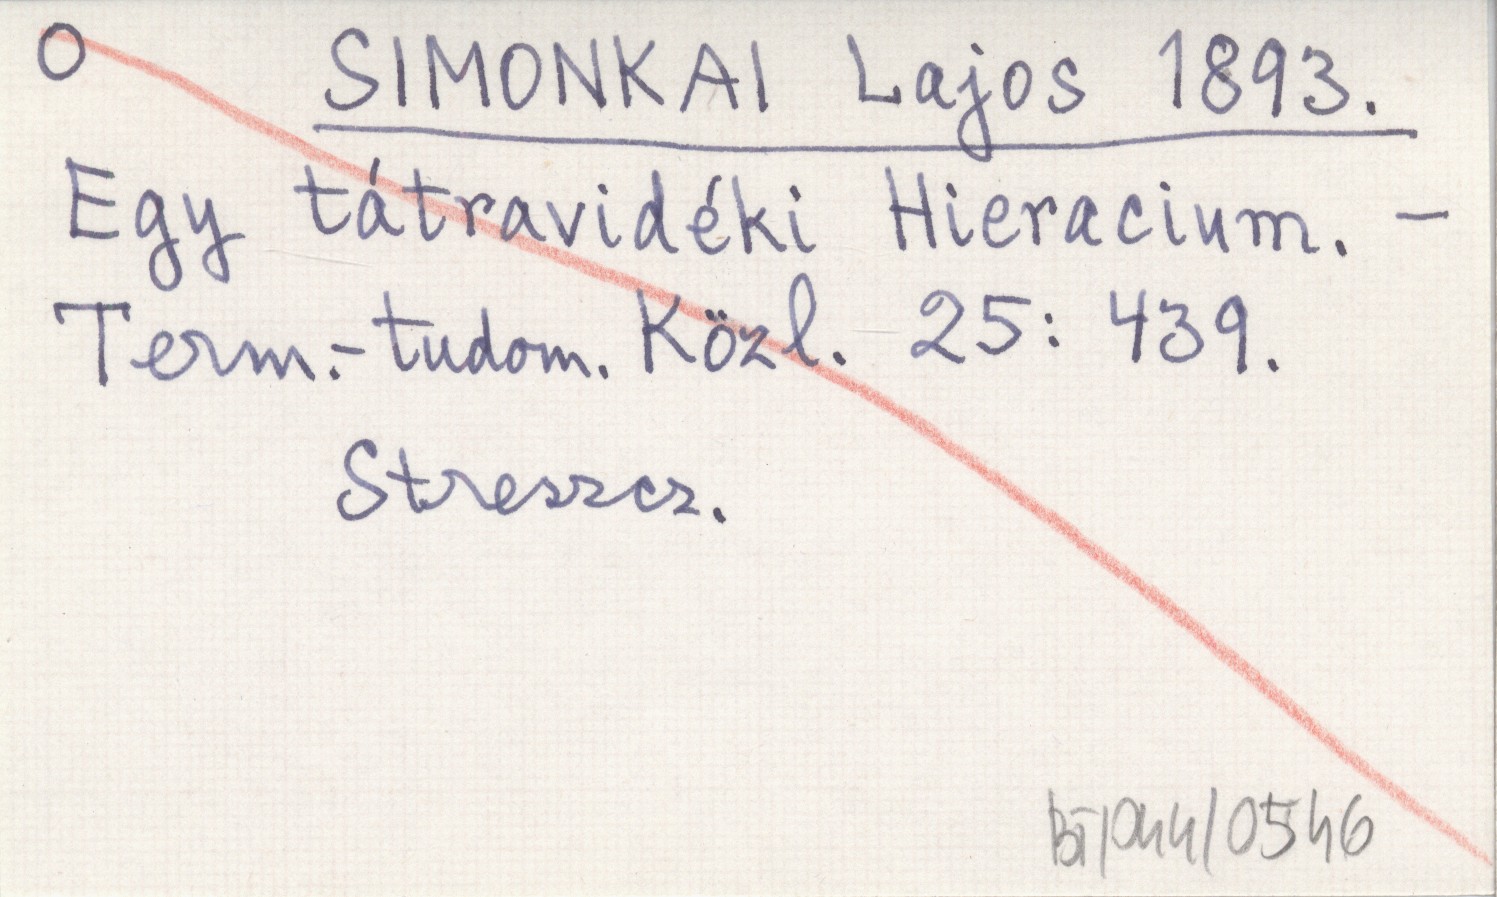 O SIMONKAI Lajos 1893.
Egy tátravidéki Hieracium. –
Term.-tudom. Közl. 25: 439.
Streszcz.